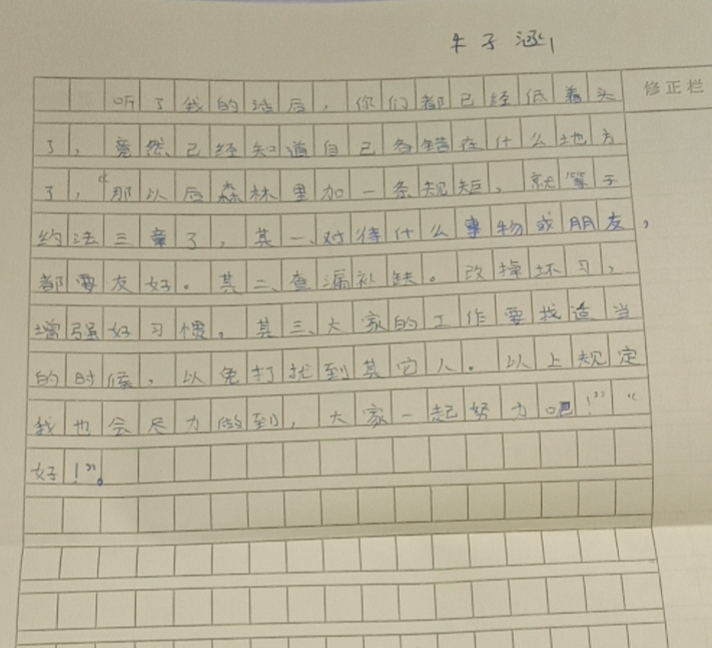 牛子涵
修正栏
听了我的话后，你们都已经低着头
了，竟然已经知道自己各错在什么地方
了，“那以后森林里加一条规矩，就等于
约法三章了，其一、对待什么事物或朋友，
都要友好。其二、查漏补缺。改掉坏习，
增强好习惯。其三、大家的工作要找适当
的时候，以免打扰到其它人。以上规定
我也会尽力做到，大家一起努力吧！”“
好！”。